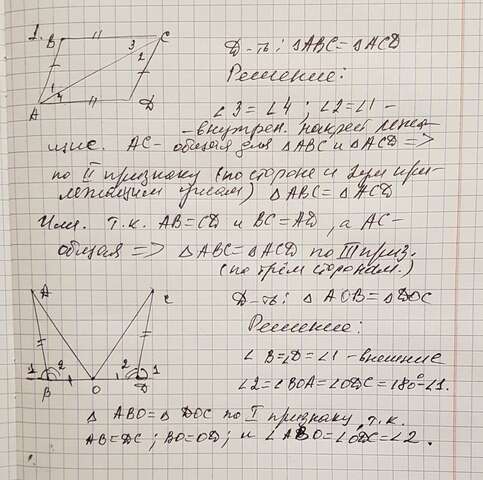 1.
B
C
3
2
1
4
A
D
Д-ть: △ABC = △ACD
Решение:
∠3 = ∠4 ; ∠2 = ∠1 –
– внутрен. накрест лежа-
щие. AC – общая для △ABC и △ACD =>
по II признаку (по стороне и двум при-
лежащим углам) △ABC = △ACD
Или. т.к. AB=CD и BC=AD, а AC –
общая => △ABC = △ACD по III приз.
(по трём сторонам.)
A
C
1 2
2 1
B
O
D
Д-ть: △ AOB = △DOC
Решение:
∠B = ∠D = ∠1 – внешние
∠2 = ∠BOA = ∠ODC = 180° - ∠1.
△ ABO = △ DOC по I признаку, т.к.
AB = DC ; BO = OD ; и ∠ABO = ∠ODC = ∠2.